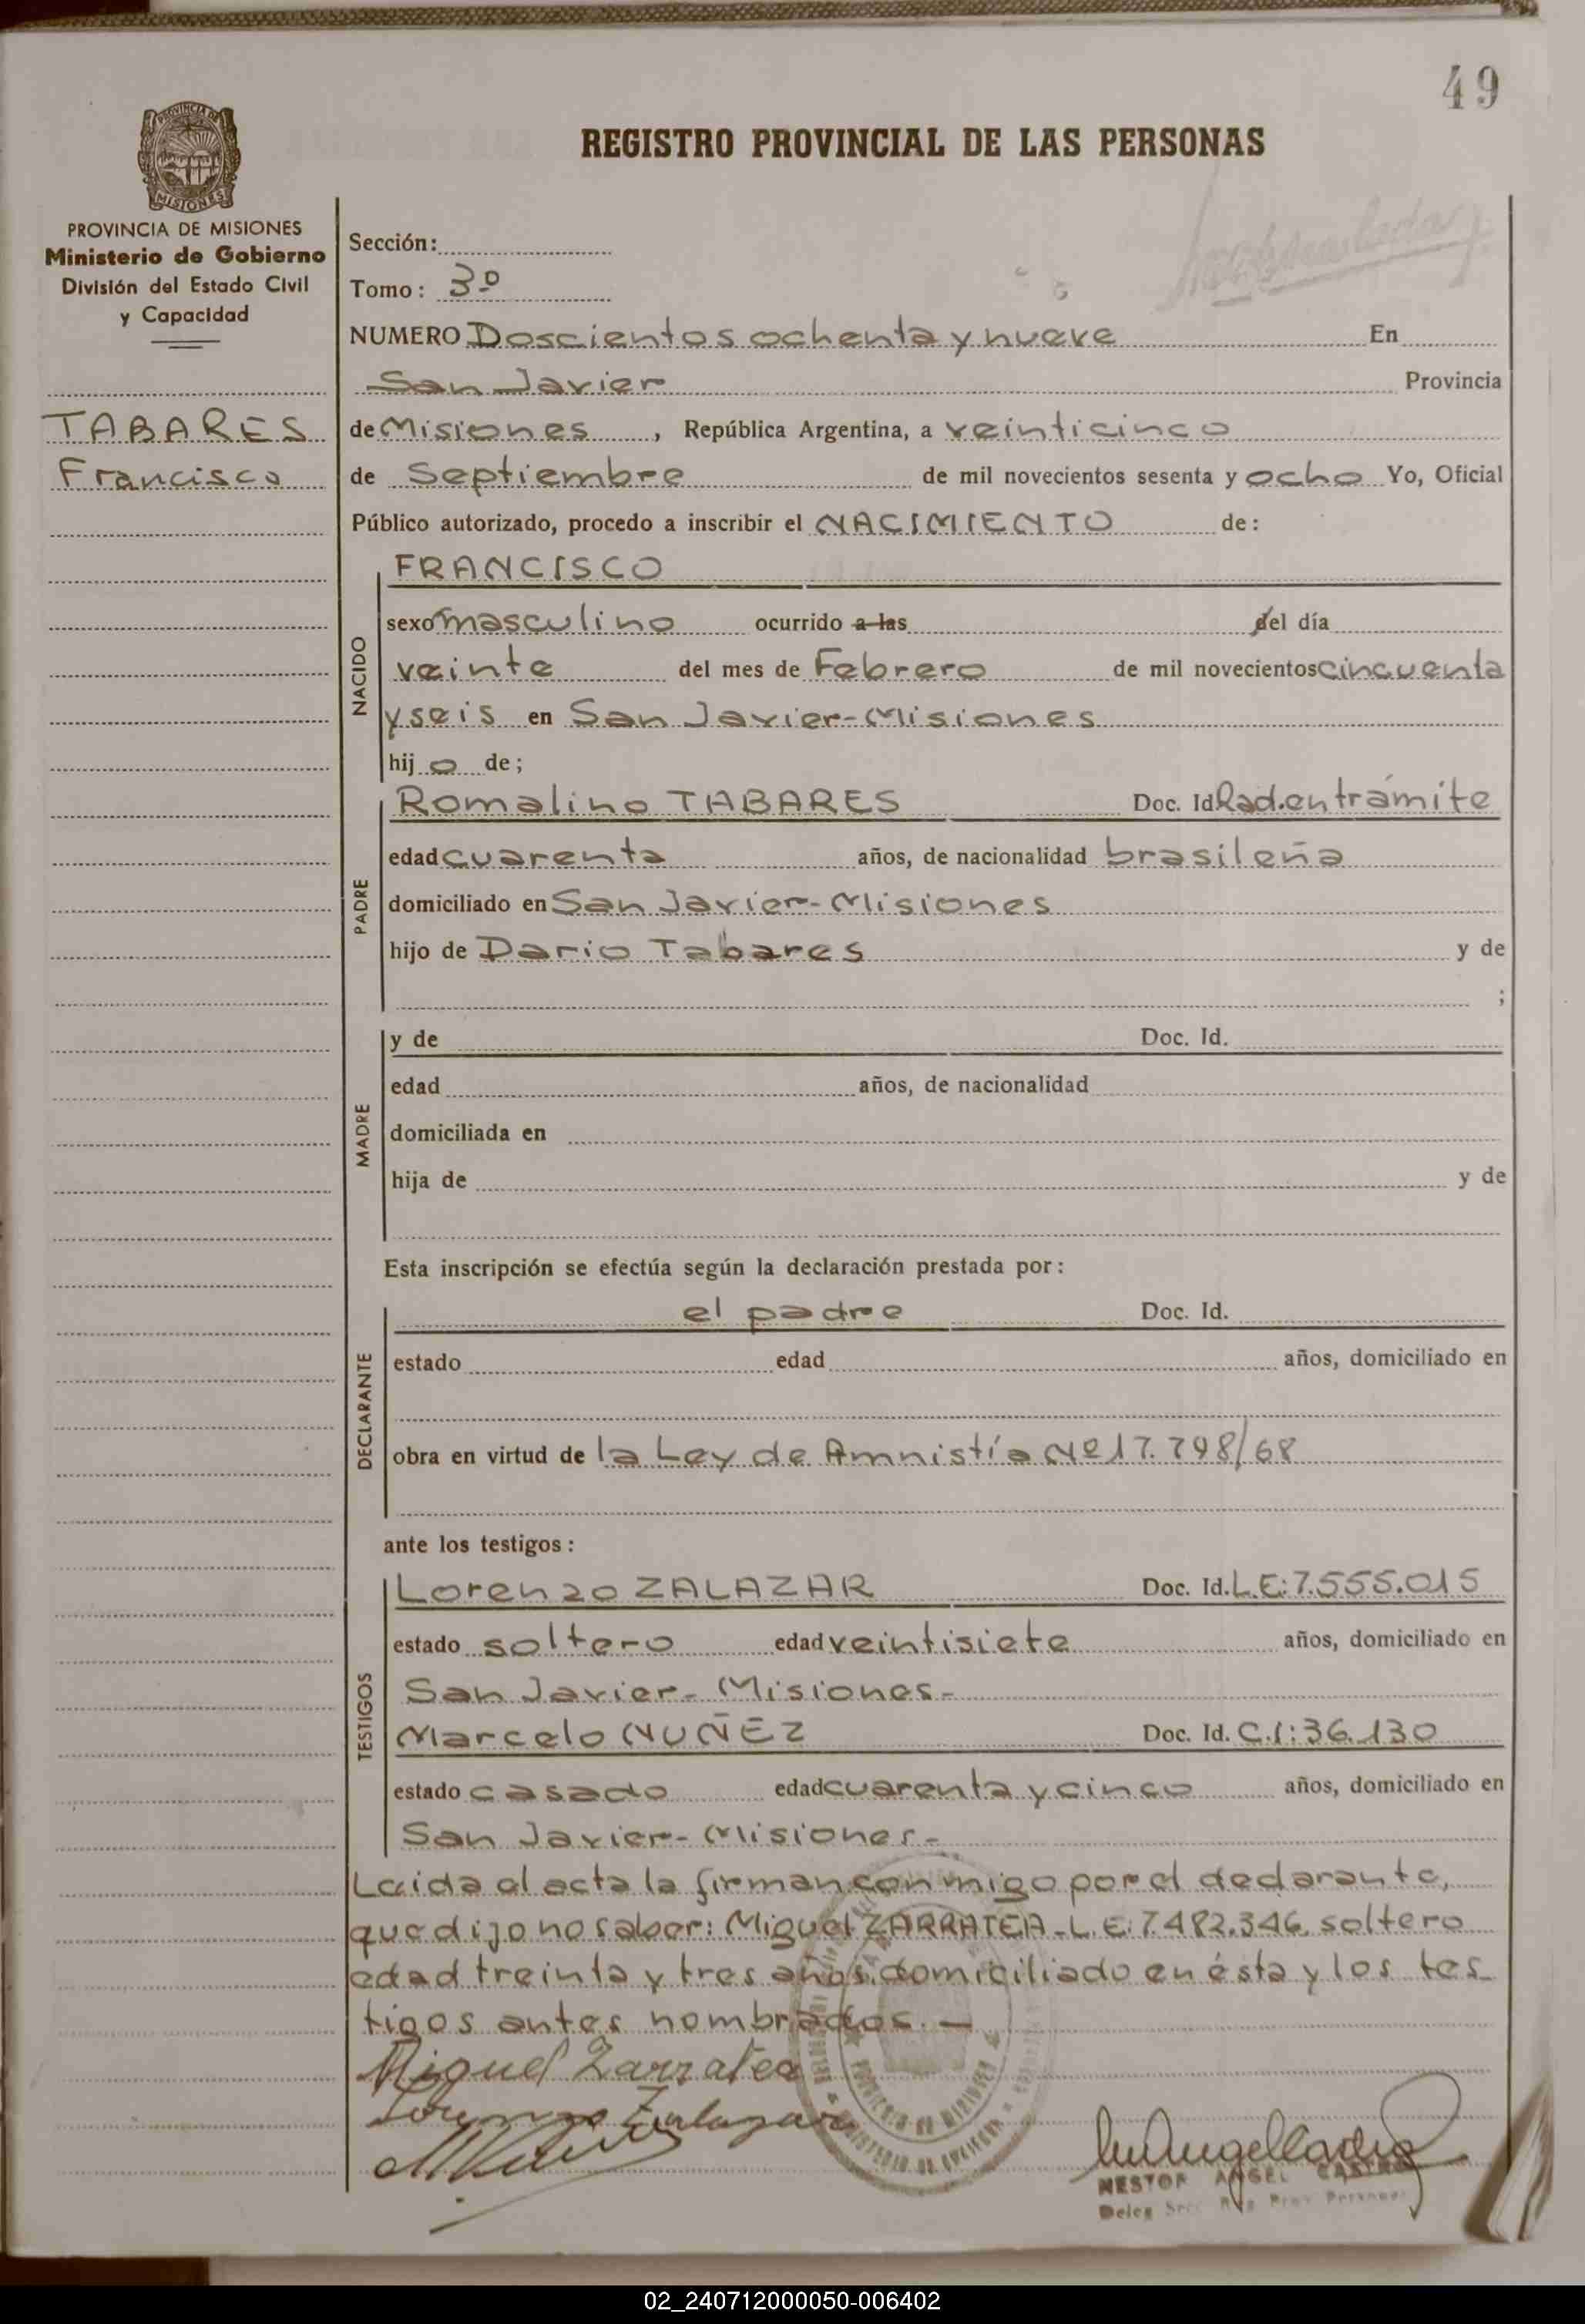 49
PROVINCIA DE
MISIONES
REGISTRO PROVINCIAL DE LAS PERSONAS
PROVINCIA DE MISIONES
Ministerio de Gobierno
División del Estado Civil
y Capacidad
TABARES
Francisco
Sección:
Tomo: 3º
NUMERO Doscientos ochenta y nueve En
San Javier Provincia
de Misiones, República Argentina, a veinticinco
de Septiembre de mil novecientos sesenta y ocho Yo, Oficial
Público autorizado, procedo a inscribir el NACIMIENTO de:
NACIDO
FRANCISCO
sexo masculino ocurrido a las del día
veinte del mes de Febrero de mil novecientos cincuenta
y seis en San Javier-Misiones
hijo de;
PADRE
Romalino TABARES Doc. Id. Rad. en trámite
edad cuarenta años, de nacionalidad brasileña
domiciliado en San Javier-Misiones
hijo de Dario Tabares y de
;
MADRE
y de Doc. Id.
edad años, de nacionalidad
domiciliada en
hija de y de
Esta inscripción se efectúa según la declaración prestada por:
DECLARANTE
el padre Doc. Id.
estado edad años, domiciliado en
obra en virtud de la Ley de Amnistía Nº 17.798/68
ante los testigos:
TESTIGOS
Lorenzo ZALAZAR Doc. Id. L.E:7.555.015
estado soltero edad veintisiete años, domiciliado en
San Javier- Misiones-
Marcelo NUÑEZ Doc. Id. C.I:36.130
estado casado edad cuarenta y cinco años, domiciliado en
San Javier-Misiones-
Leida el acta la firman conmigo por el declarante,
que dijo no saber: Miguel ZARRATEA-L.E:7.482.346 soltero
edad treinta y tres años domiciliado en ésta y los tes
tigos antes nombrados.—
Miguel Zarratea
Lorenzo Zalazar
NESTOR ANGEL CASTRO
02_240712000050-006402